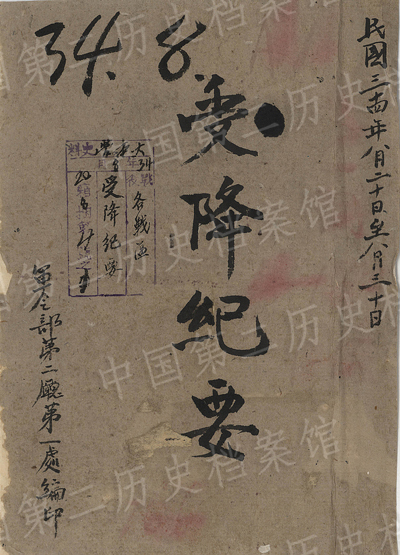 34. 8.
民國三十四年八月二十日至八月三十日
受降紀要
各戰區
受降紀要
軍令部第二廳第一處編印
中国第二历史档案馆